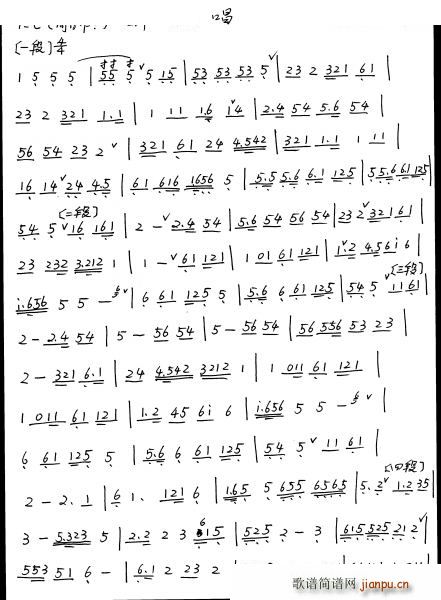 唱
(一段)
1 5 5 5 | 55 5 5 15 | 53 53 53 5 | 23 2 321 61 |
23 2 321 1.1 | 1 11 1.6 14 | 2.4 54 5.6 54 |
56 54 23 2 | 321 61 24 4.542 | 321 1.1 1 11 |
16 14 24 4.5 | 61 616 1656 5 | 5.5 5.6 6.1 125 | 55.661 125 |
(二段)
54 5 16 161 | 2 - 2.4 54 | 5.6 54 56 54 | 23 2 321 61 |
23 232 3.212 1 | 1 - 61 121 | 1 01 61 121 | 1.2 4.56i 6 |
(三段)
i.656 5 5 - | 6 61 125 5 | 5.6 6 61 125 | 54 5 11 61 |
2 - 2.4 54 | 5 - 56 54 | 5 - 56 54 | 56 556 53 23 |
2 - 321 6.1 | 24 4.542 3212 1 | 1 011 61 121 |
1 011 61 121 | 1.2 45 6i 6 | i.656 5 5 - |
6 61 125 5 | 5.6 6 61 125 | 54 5 11 61 |
(四段)
2 - 2. 1 | 6 1. 121 6 | 1.65 5 655 6565 | 5. 2 1.2 35 |
3 - 5.323 5 | 2.2 2 3 615 | 525 2 - 3 | 615 525 21 2 |
553 51 6 - | 6.1 2 23 2
歌谱简谱网
jianpu.cn